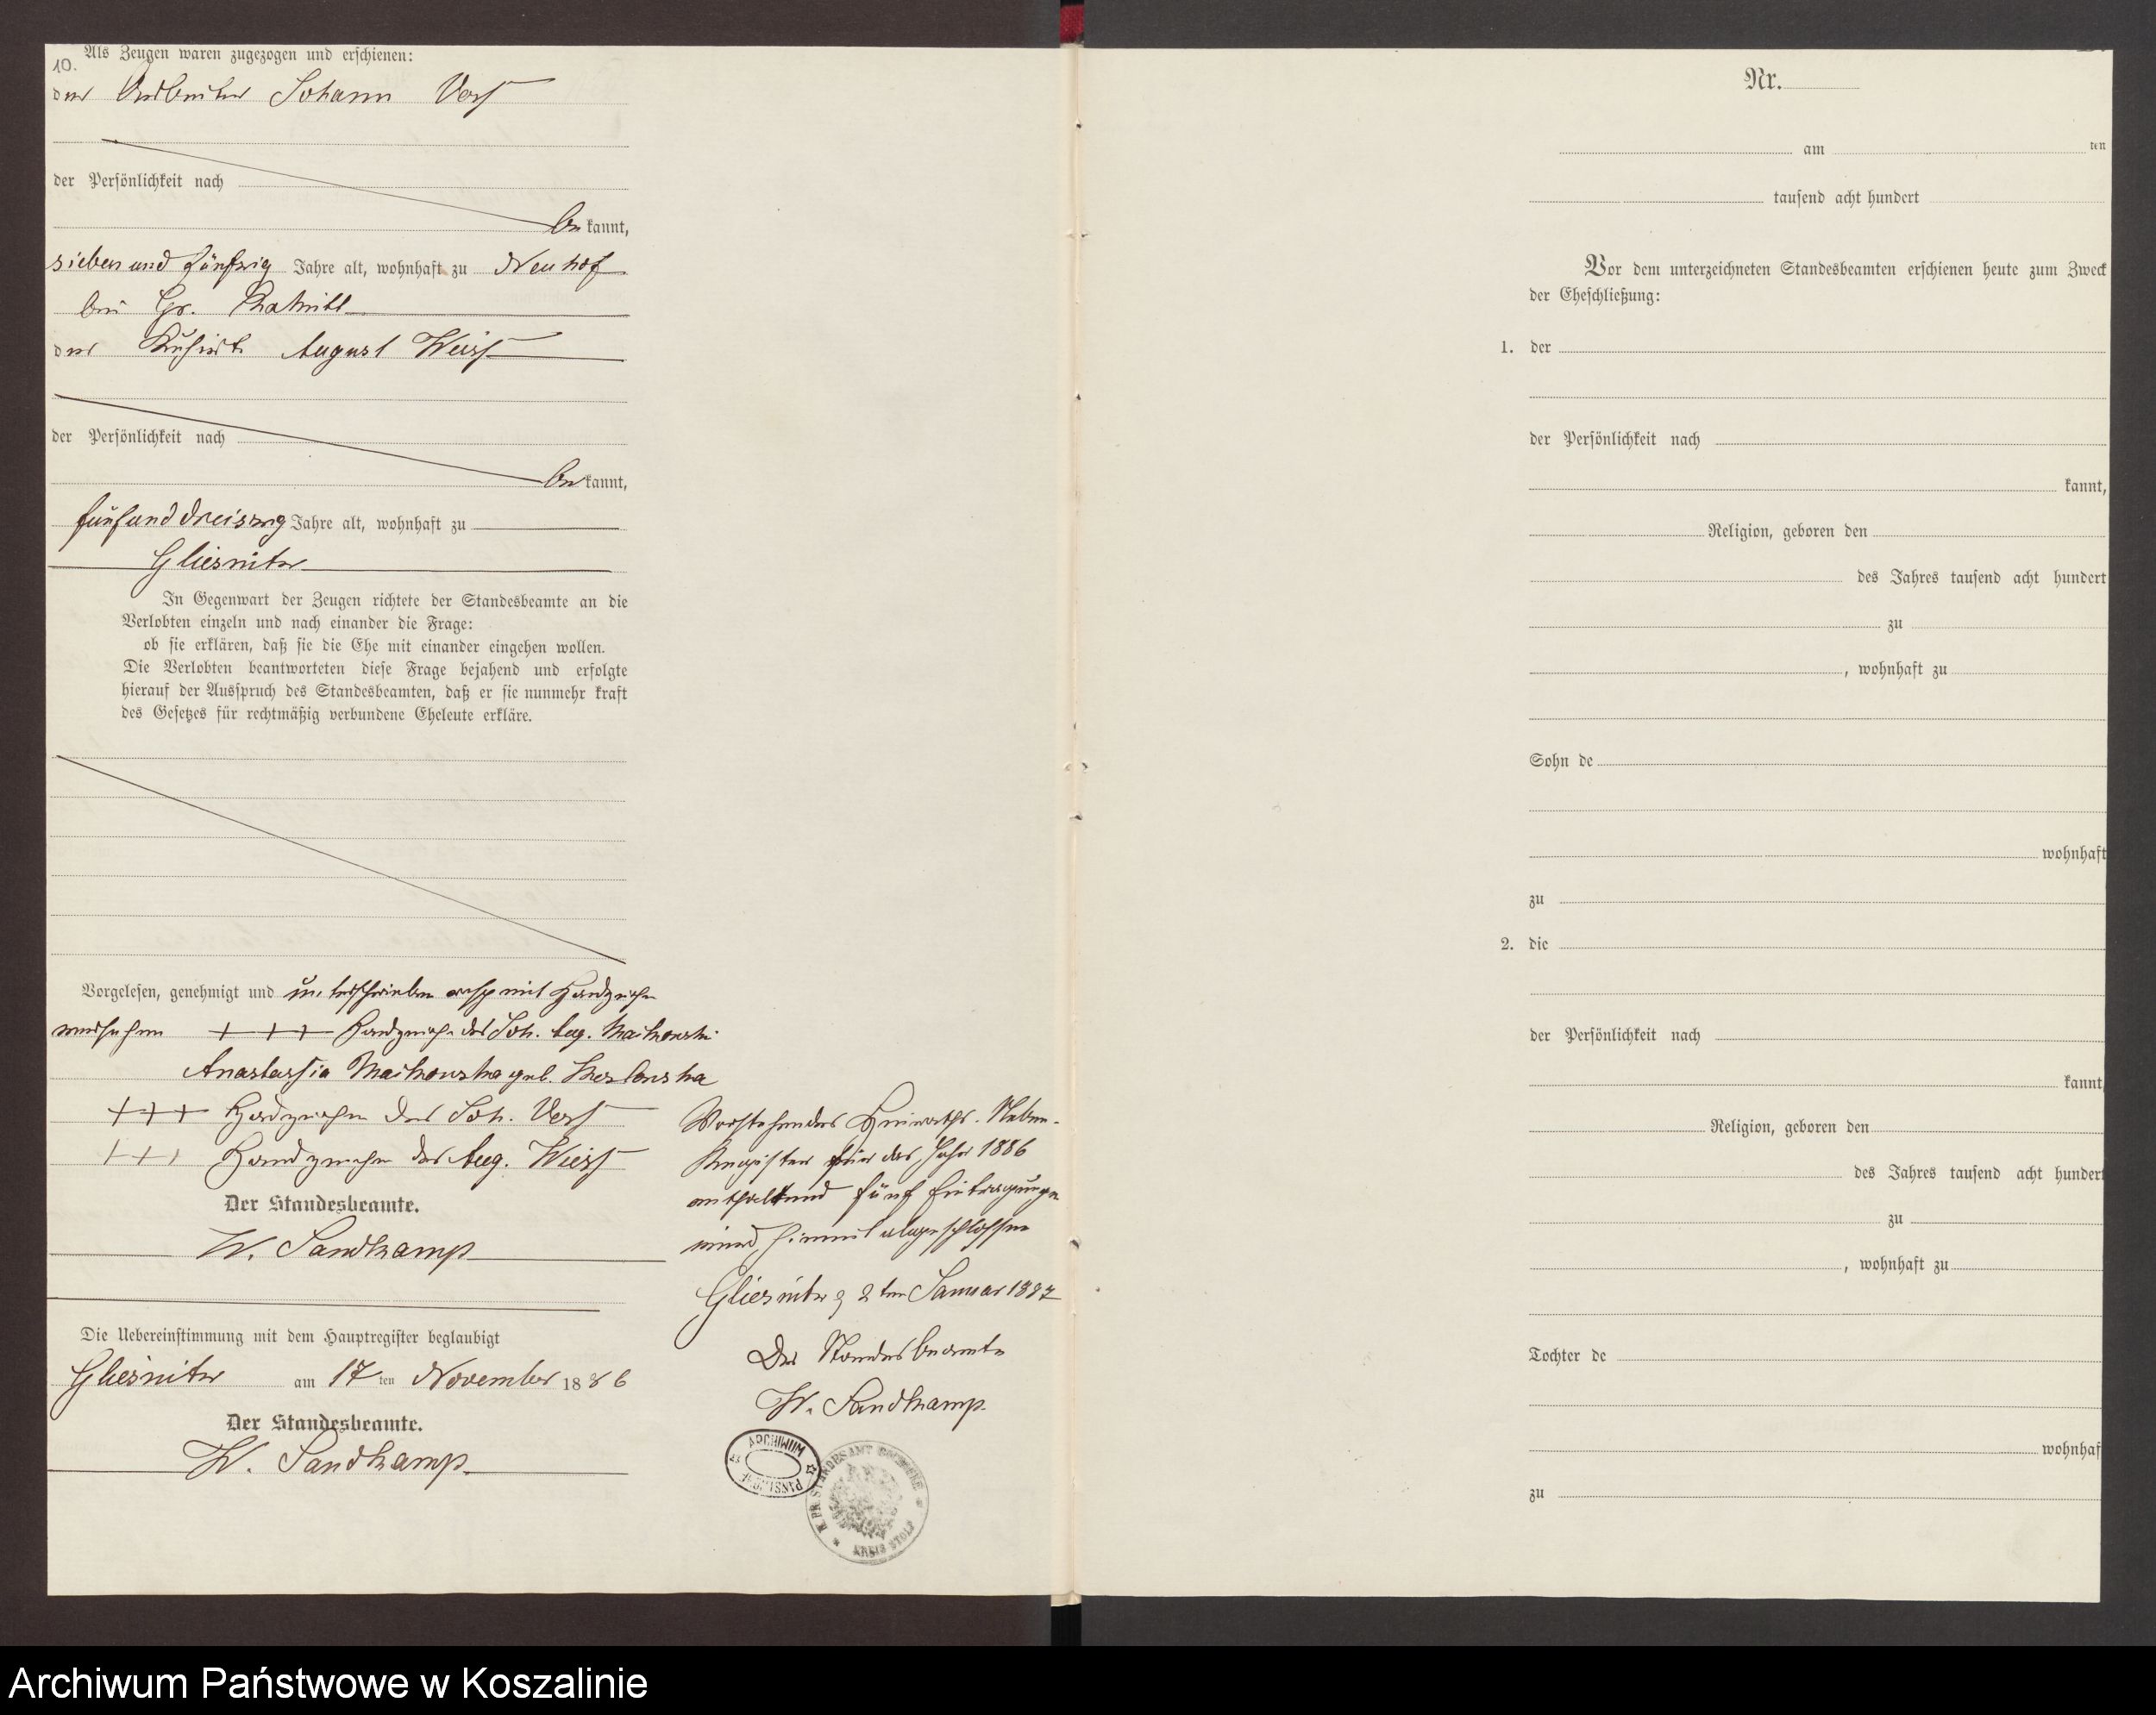 10.
Als Zeugen waren zugezogen und erschienen:
der Arbeiter Johann Voss
der Persönlichkeit nach
be kannt,
sieben und fünfzig Jahre alt, wohnhaft zu Neuhof
bei Gr.
der Kuhhirte August Weiss
der Persönlichkeit nach
be kannt,
fünf und dreiszig Jahre alt, wohnhaft zu
Gliesnitz
In Gegenwart der Zeugen richtete der Standesbeamte an die
Verlobten einzeln und nach einander die Frage:
ob sie erklären, daß sie die Ehe mit einander eingehen wollen.
Die Verlobten beantworteten diese Frage bejahend und erfolgte
hierauf der Ausspruch des Standesbeamten, daß er sie nunmehr kraft
des Gesetzes für rechtmäßig verbundene Eheleute erkläre.
Vorgelesen, genehmigt und unterschrieben resp mit Handzeichen
versehen +++ Handzeichen des Joh. Aug. Maikowski
Anastassia Maikowska geb.
+++ Handzeichen des Joh. Voss
+++ Handzeichen des Aug. Weiss
Der Standesbeamte.
W. Sandkamp
Die Uebereinstimmung mit dem Hauptregister beglaubigt
Gliesnitz am 17 ten November 1886
Der Standesbeamte.
W. Sandkamp
Vorstehendes Heiraths-Neben-
Register für das Jahr 1886
enthaltend fünf Eintragungen
wird hiermit abgeschlossen
Gliesnitz d 2ten Januar 1887
Der Standesbeamte
W. Sandkamp
ARCHIWUM
STANDESAMT
KREIS STOLP
Nr.
am ten
tausend acht hundert
Vor dem unterzeichneten Standesbeamten erschienen heute zum Zweck
der Eheschließung:
1. der
der Persönlichkeit nach
kannt,
Religion, geboren den
des Jahres tausend acht hundert
zu
, wohnhaft zu
Sohn de
wohnhaft
zu
2. die
der Persönlichkeit nach
kannt,
Religion, geboren den
des Jahres tausend acht hundert
zu
, wohnhaft zu
Tochter de
wohnhaf
zu
Archiwum Państwowe w Koszalinie